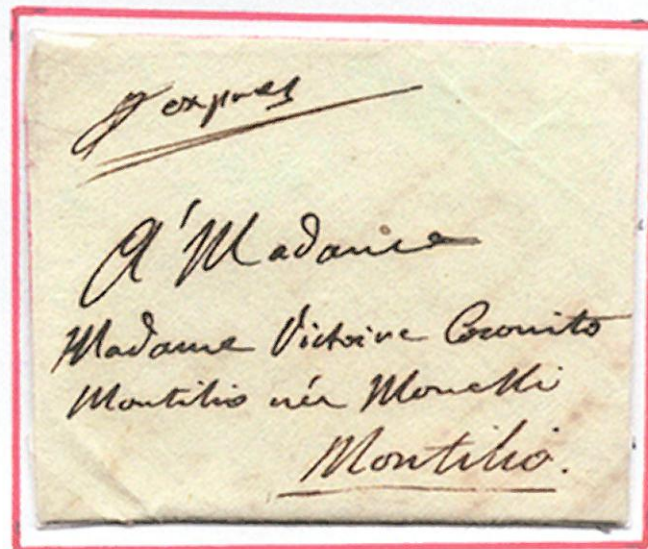 p exprès
A' Madame
Madame Victoire Coconito
Montilio née Monelli
Montilio.